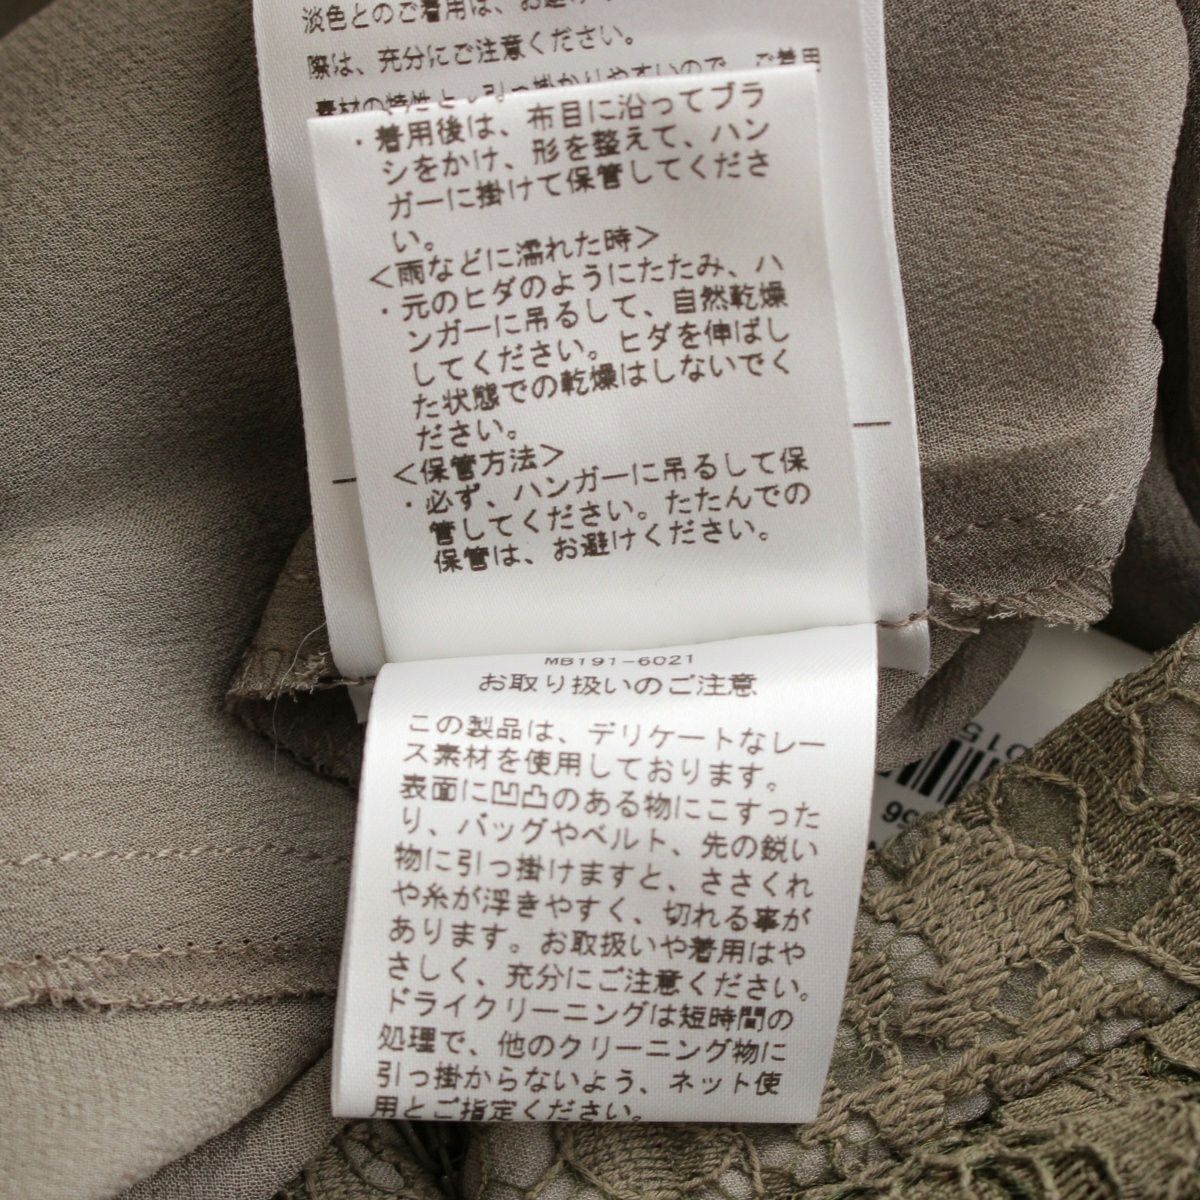 淡色とのご着用は、お避け
際は、充分にご注意ください。
素材の特性上、引っ掛かりやすいので、ご着用
・着用後は、布目に沿ってブラ
シをかけ、形を整えて、ハン
ガーに掛けて保管してくださ
い。
<雨などに濡れた時>
・元のヒダのようにたたみ、ハ
ンガーに吊るして、自然乾燥
してください。ヒダを伸ばし
た状態での乾燥はしないでく
ださい。
<保管方法>
・必ず、ハンガーに吊るして保
管してください。たたんでの
保管は、お避けください。
MB191-6021
お取り扱いのご注意
この製品は、デリケートなレー
ス素材を使用しております。
表面に凹凸のある物にこすった
り、バッグやベルト、先の鋭い
物に引っ掛けますと、ささくれ
や糸が浮きやすく、切れる事が
あります。お取扱いや着用はや
さしく、充分にご注意ください。
ドライクリーニングは短時間の
処理で、他のクリーニング物に
引っ掛からないよう、ネット使
用とご指定ください。